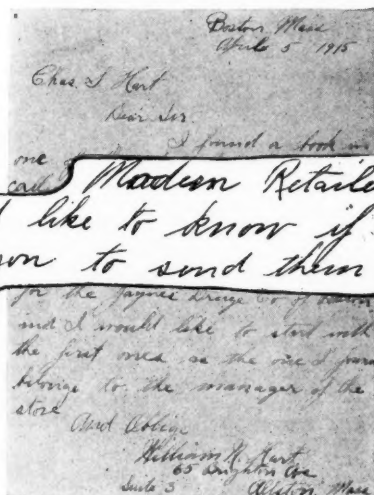 Boston, Mass
April 5 1915
Chas. I Hart
Dear Sir.
I found a book in
one
call Modern Retaile
d like to know if
son to send them
for the Jaynes Drug Co of Boston
and I would like to start with
the first ones as the one I found
belongs to the manager of the
store
And Oblige
William N. Hart
65 Brighton Ave
Suite 3 Allston Mass